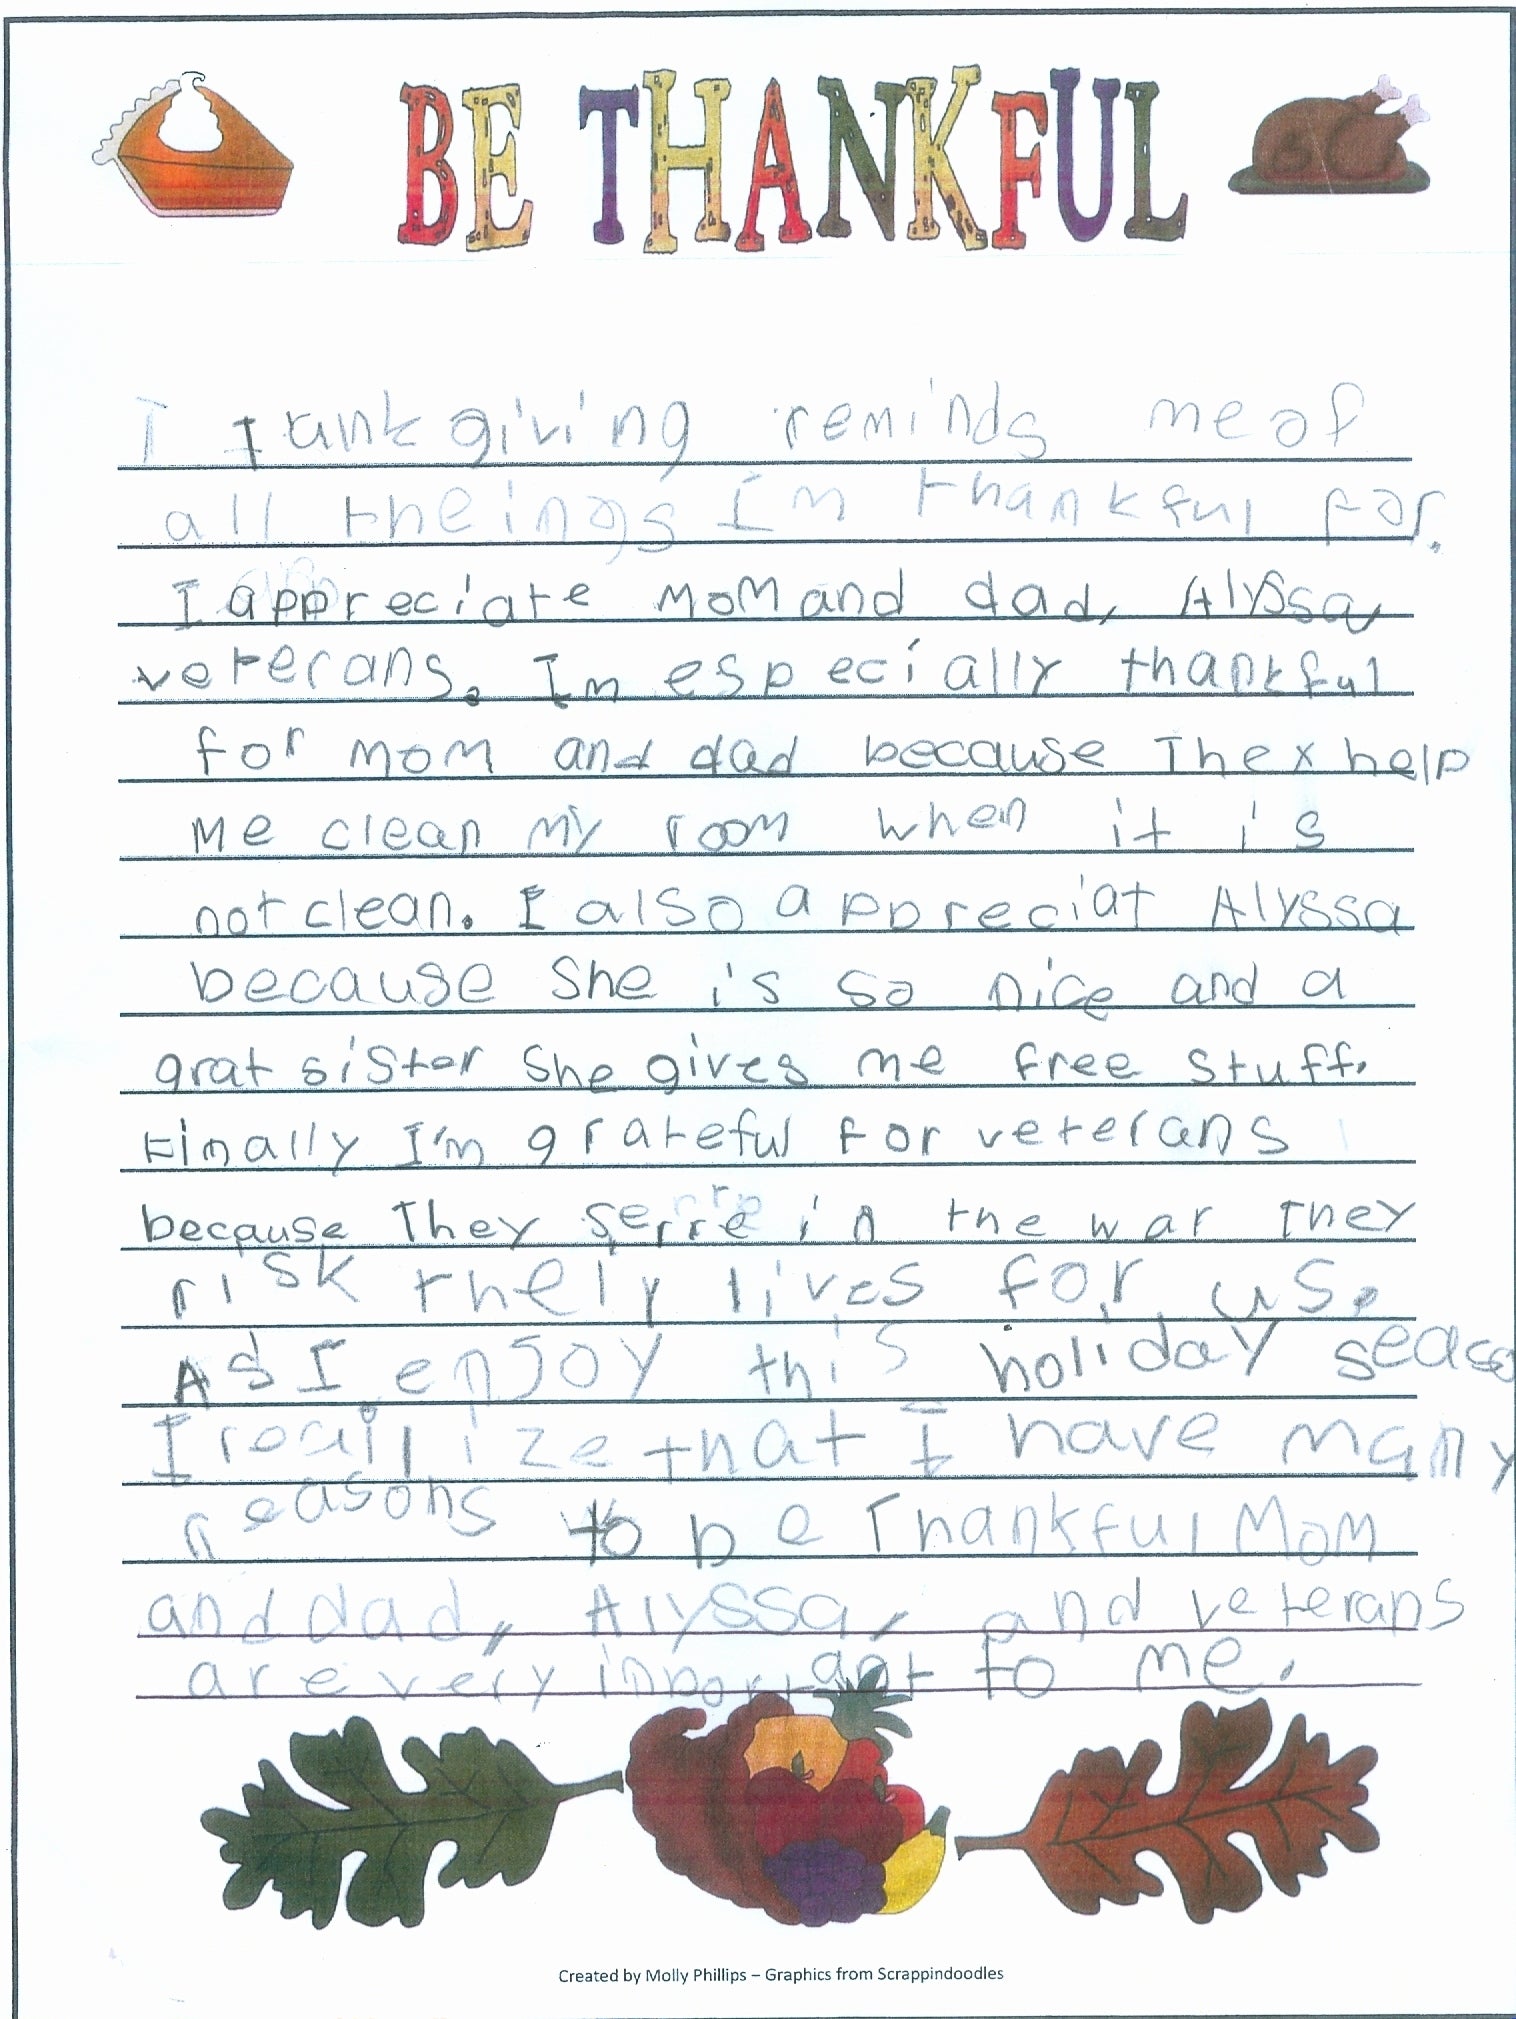 BE THANKFUL
I Tankgiving reminds me of
all theings I'm thankful for.
I appreciate mom and dad, Alyssa,
veterans. Im especially thankful
for mom and dad because Thex help
me clean my room when it is
not clean. I also appreciat Alyssa
because She is so nice and a
grat sister She gives me free stuff.
Finally I'm grateful for veterans
because They serre in the war They
risk thely lives for us.
As I enjoy this holiday seaso
I realize that I have many
reasons to be Thankful Mom
and dad, Alyssa, and veterans
are very inportant to me.
Created by Molly Phillips – Graphics from Scrappindoodles